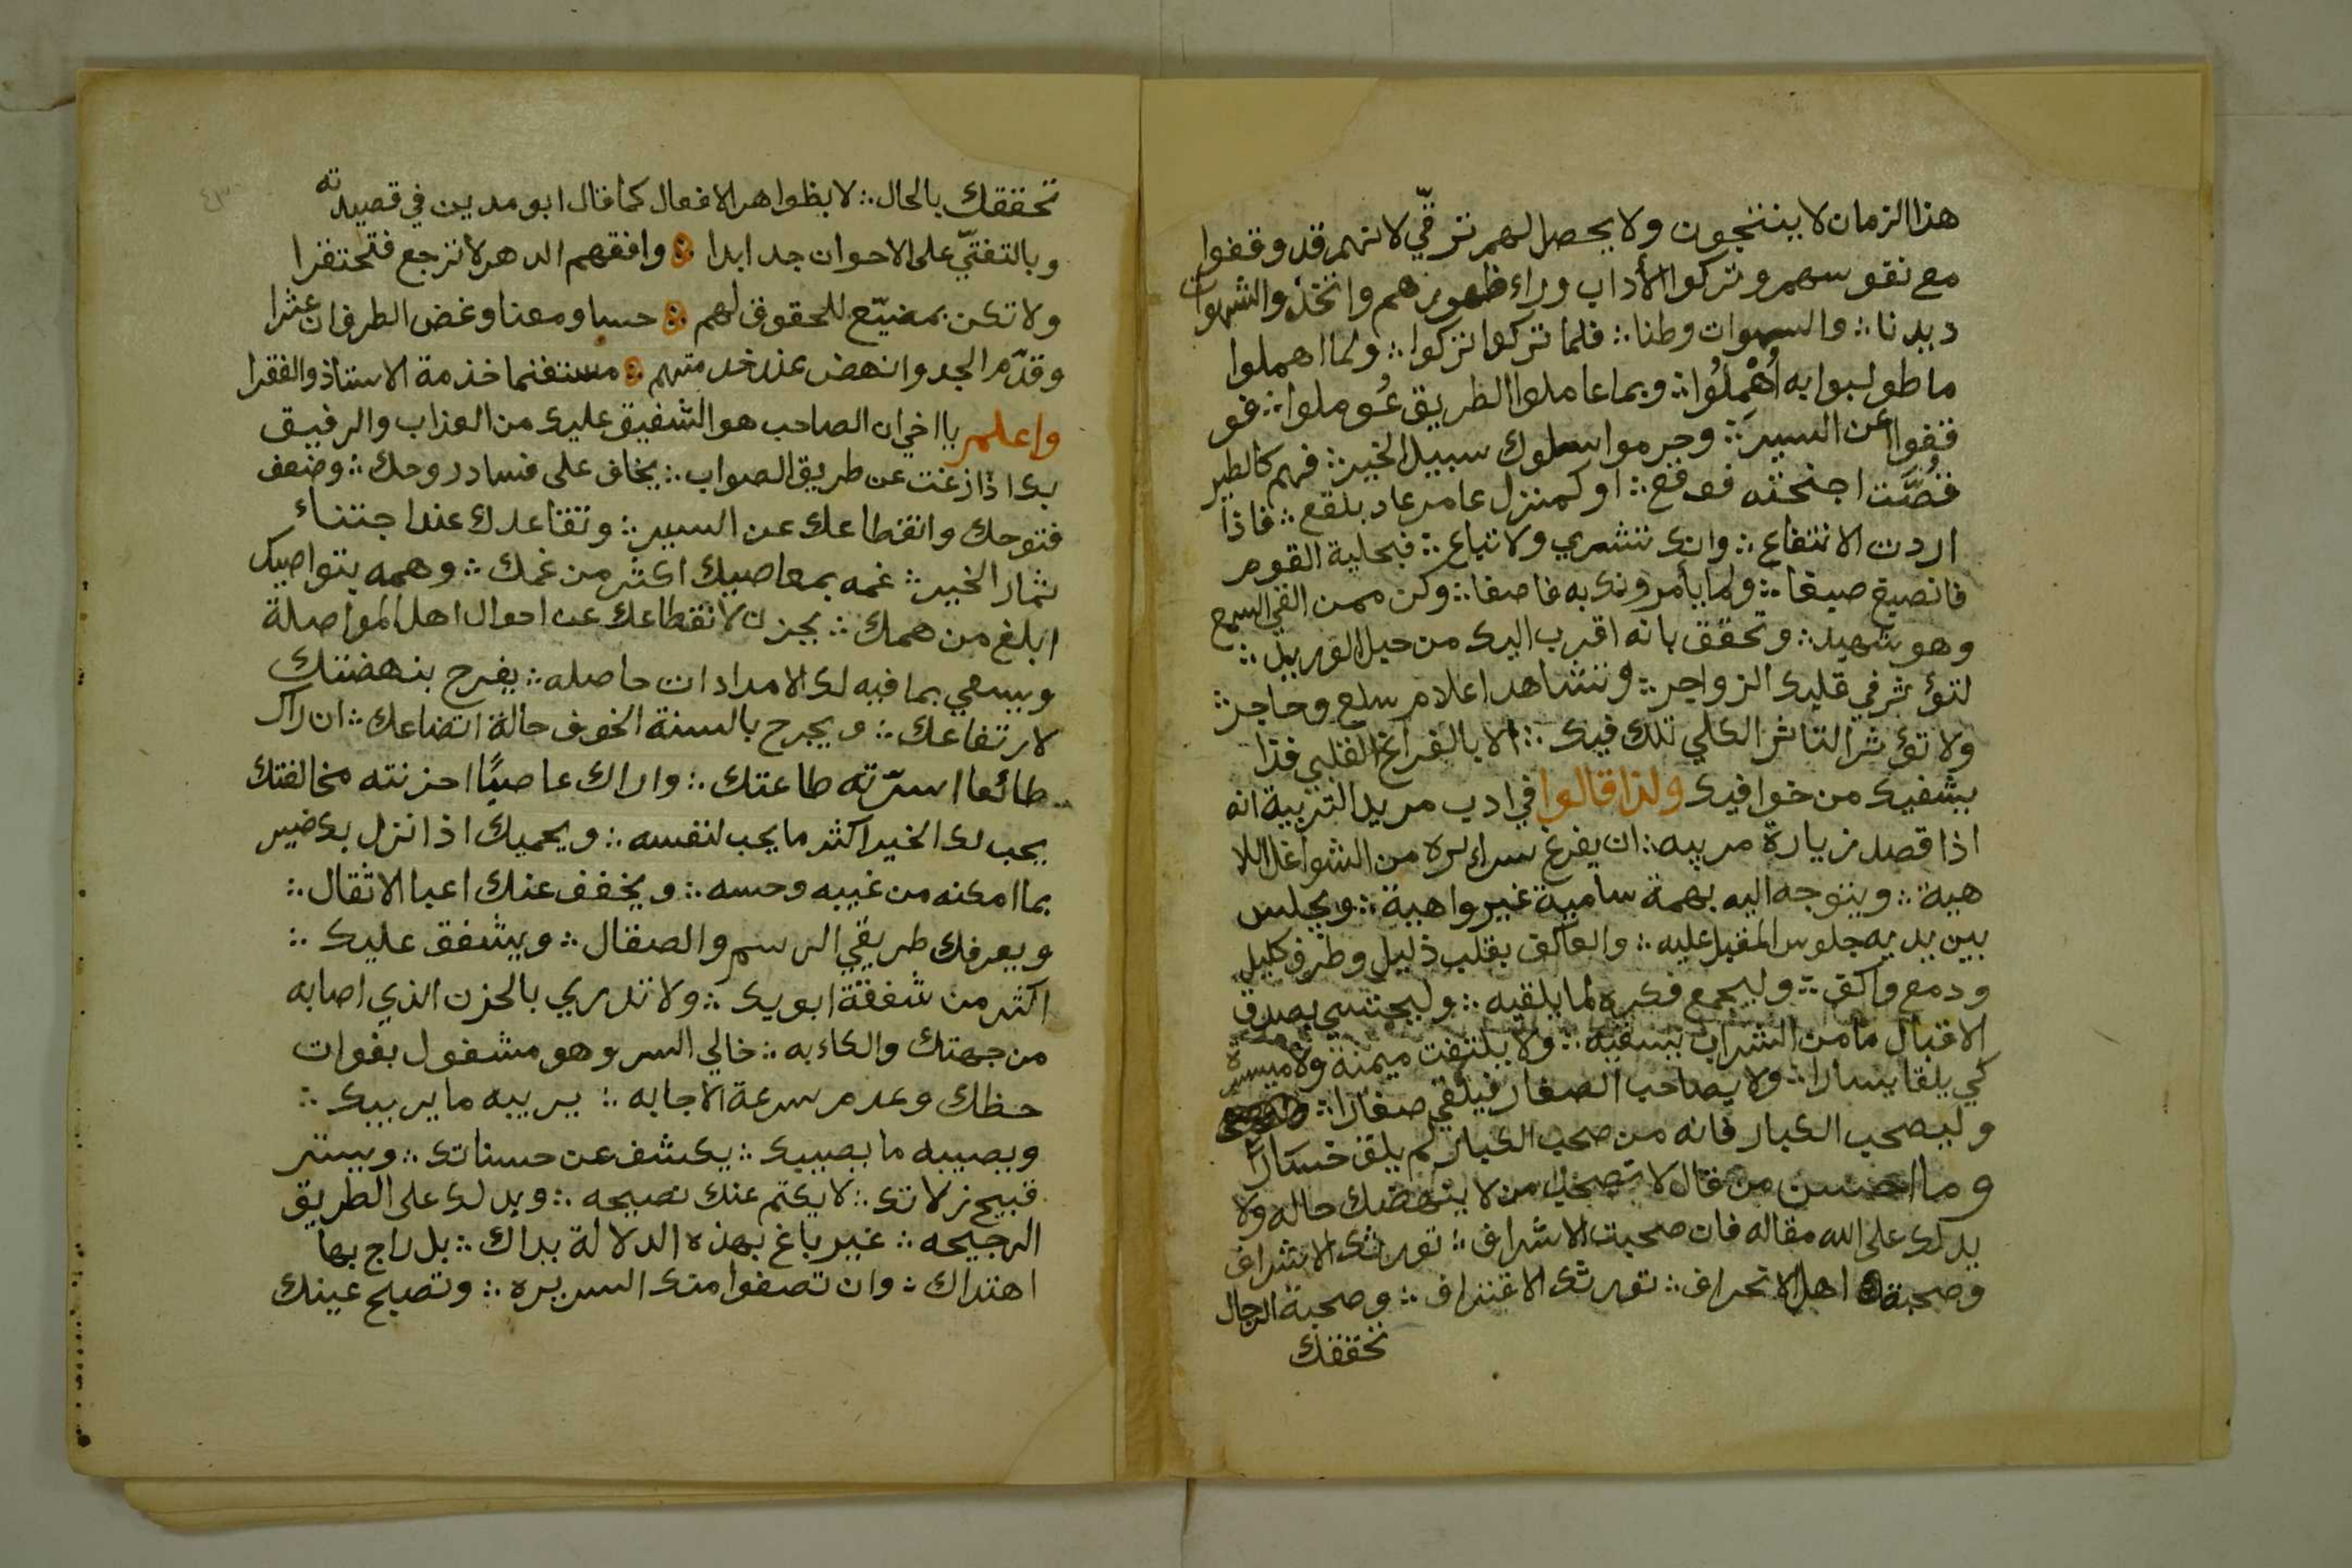 هذا الزمان لا ينتجون ولا يحصل لهم ترقّي لانهم قد وقفوا
مع نفوسهم وتركوا الأداب وراء ظهورهم واتخذوا الشهوات
ديدنا ؞ والسهوات وطنا ؞ فلما تركوا تركوا ؞ ولما اهملوا
ما طولبوا به أُهْمِلُوا ؞ وبما عاملوا الطريق عُوملوا ؞ فو
قفوا عن السير ؞ وحرموا سلوك سبيل الخير ؞ فهم كالطير
قُصَّت اجنحته فوقع ؞ او كمنزل عامر عاد بلقع ؞ فاذا
اردت الانتفاع ؞ وانك تشري ولا تباع ؞ فبحلية القوم
فانصبغ صبغا ؞ ولما يأمرونك به فاصغا ؞ وكن ممن القي السمع
وهو شهيد ؞ وتحقق بانه اقرب اليك من حبل الوريد ؞
لتؤثر في قلبك الزواجر ؞ وتشاهد اعلام سلع وحاجر ؞
ولا تؤثر التاثر الكلي تلك فيك ؞ الا بالفراغ القلبي فذا
يشفيك من خوافيك ولذا قالوا في ادب مريد التربية انه
اذا قصد زيارة مربيه ؞ ان يفرغ سرائره من الشواغل اللا
هية ؞ ويتوجه اليه بهمة سامية غير واهية ؞ ويجلس
بين يديه جلوس المقبل عليه ؞ والعاكف بقلب ذليل وطرف كليل
ودمع واكف ؞ وليجمع فكره لما يلقيه ؞ وليحتسي بصدق
الاقبال ما من الشراب يسقيه ؞ ولا يلتفت ميمنة ولا ميسرة
كي يلقا يسارا ؞ ولا يصاحب الصغار فيلقي صغارا ؞
وليصحب الكبار فانه من صحب الكبار لم يلق خسارا
وما احسن من قال لا تصحب من لا ينهضك حاله ولا
يدلك على الله مقاله فان صحبت الاشراف ؞ تورثك الاشراف
وصحبة اهل الانحراف ؞ تورثك الاقتراف ؞ وصحبة الرجال
تحققك
تحققك بالحال ؞ لا بظواهر الافعال كما قال ابو مدين في قصيدته
وبالتفتّي على الاخوان جد ابدا ؞ وافقهم الدهر لا ترجع فتحتقرا
ولا تكن بمضيّع للحقوق لهم ؞ حسا ومعنا وغض الطرف ان عثرا
وقدّم الجد وانهض عند خدمتهم ؞ مستغنما خذمة الاستاذ والفقرا
واعلم يا اخي ان الصاحب هو الشفيق عليك من العذاب والرفيق
بك اذا زغت عن طريق الصواب ؞ يخاف على فساد روحك ؞ وضعف
فتوحك وانقطاعك عن السير ؞ وتقاعدك عند اجتناء
ثمار الخير ؞ غمه بمعاصيك اكثر من غمك ؞ وهمه بتواصيك
ابلغ من همك ؞ يحزن لانقطاعك عن احوال اهل المواصلة
ويسعي بما فيه لك الامدادات حاصله ؞ يفرح بنهضتك
لارتفاعك ؞ ويجرح بالسنة الخوف حالة اتضاعك ؞ ان راك
طائعا اسرّته طاعتك ؞ واراك عاصيًا احزنته مخالفتك
يحب لك الخير اكثر ما يحب لنفسه ؞ ويحميك اذا نزل بك ضير
بما امكنه من غيبه وحسه ؞ ويخفف عنك اعبا الاثقال ؞
ويعرفك طريقي الرسم والصقال ؞ ويشفق عليك ؞
اكثر من شفقة ابويك ؞ ولا تدري بالحزن الذي اصابه
من جهتك والكاءبه ؞ خالي السر وهو مشغول بفوات
حظك وعدم سرعة الاجابه ؞ يريبه ما يريبك ؞
ويصيبه ما يصيبك ؞ يكشف عن حسناتك ؞ ويستر
قبيح زلاتك ؞ لا يكتم عنك نصيحه ؞ ويدلك على الطريق
الرجيحه ؞ غير باغ بهذه الدلالة براك ؞ بل راج بها
اهتداك ؞ وان تصفوا منك السريره ؞ وتصبح عينك